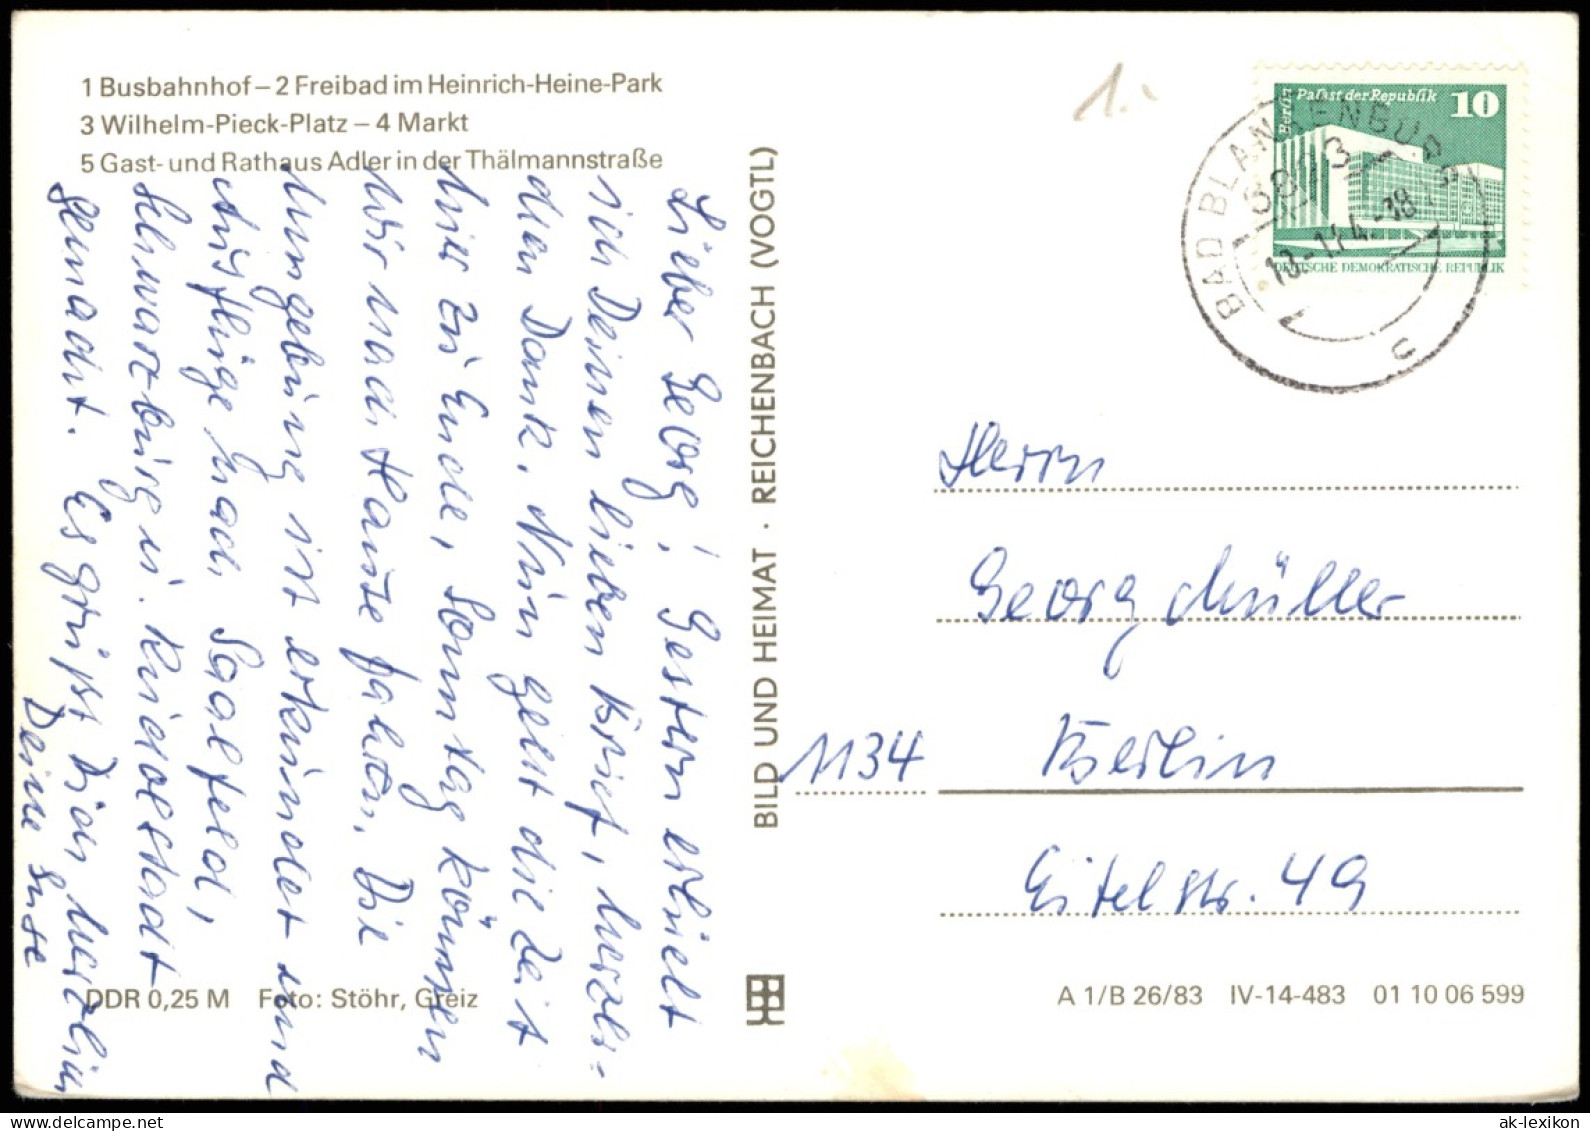 1 Busbahnhof – 2 Freibad im Heinrich-Heine-Park
3 Wilhelm-Pieck-Platz – 4 Markt
5 Gast- und Rathaus Adler in der Thälmannstraße
Lieber Georg! Gestern erhielt
ich Deinen lieben Brief, herzli-
chen Dank. Nun geht die Zeit
hier zu Ende, Sonntag können
wir nach Hause fahren. Die
Umgebung ist erkundet und
Ausflüge nach Saalfeld,
Schwarzburg u. Rudolstadt
gemacht. Es grüßt Dich herzlich
Deine Suse
DDR 0,25 M Foto: Stöhr, Greiz
BILD UND HEIMAT · REICHENBACH (VOGTL)
1.-
Berlin
Palast der Republik
10
DEUTSCHE DEMOKRATISCHE REPUBLIK
BAD BLANKENBURG
6823
Herrn
Georg Müller
1134 Berlin
Eitelstr. 49
A 1/B 26/83 IV-14-483 01 10 06 599
ak-lexikon.com